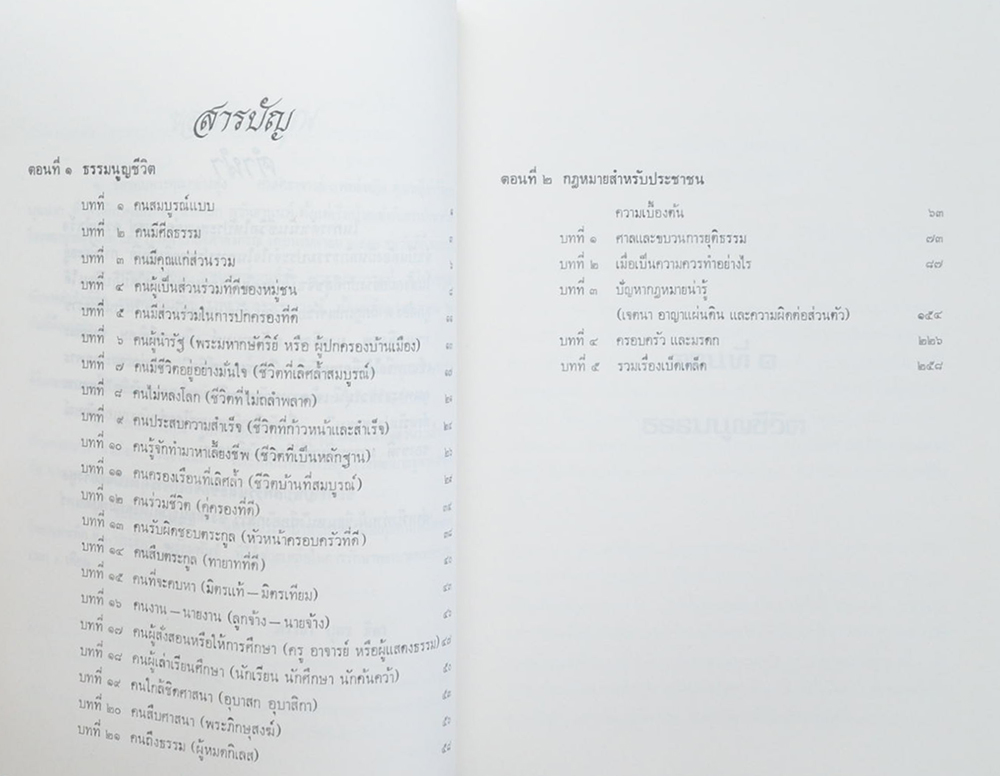 สารบัญ
ตอนที่ ๑ ธรรมนูญชีวิต
บทที่ ๑ คนสมบูรณ์แบบ
บทที่ ๒ คนมีศีลธรรม
บทที่ ๓ คนมีคุณแก่ส่วนรวม
บทที่ ๔ คนผู้เป็นส่วนร่วมที่ดีของหมู่ชน
บทที่ ๕ คนมีส่วนร่วมในการปกครองที่ดี
บทที่ ๖ คนผู้นำรัฐ (พระมหากษัตริย์ หรือ ผู้ปกครองบ้านเมือง)
บทที่ ๗ คนมีชีวิตอยู่อย่างมั่นใจ (ชีวิตที่เลิศล้ำสมบูรณ์)
บทที่ ๘ คนไม่หลงโลก (ชีวิตที่ไม่ถลำพลาด)
บทที่ ๙ คนประสบความสำเร็จ (ชีวิตที่ก้าวหน้าและสำเร็จ)
บทที่ ๑๐ คนรู้จักทำมาหาเลี้ยงชีพ (ชีวิตที่เป็นหลักฐาน)
บทที่ ๑๑ คนครองเรือนที่เลิศล้ำ (ชีวิตบ้านที่สมบูรณ์)
บทที่ ๑๒ คนร่วมชีวิต (คู่ครองที่ดี)
บทที่ ๑๓ คนรับผิดชอบตระกูล (หัวหน้าครอบครัวที่ดี)
บทที่ ๑๔ คนสืบตระกูล (ทายาทที่ดี)
บทที่ ๑๕ คนที่จะคบหา (มิตรแท้ – มิตรเทียม)
บทที่ ๑๖ คนงาน – นายงาน (ลูกจ้าง – นายจ้าง)
บทที่ ๑๗ คนผู้สั่งสอนหรือให้การศึกษา (ครู อาจารย์ หรือผู้แสดงธรรม) ๔๗
บทที่ ๑๘ คนผู้เล่าเรียนศึกษา (นักเรียน นักศึกษา นักค้นคว้า) ๕๐
บทที่ ๑๙ คนใกล้ชิดศาสนา (อุบาสก อุบาสิกา)
บทที่ ๒๐ คนสืบศาสนา (พระภิกษุสงฆ์)
บทที่ ๒๑ คนถึงธรรม (ผู้หมดกิเลส)
ตอนที่ ๒ กฎหมายสำหรับประชาชน
ความเบื้องต้น ๖๓
บทที่ ๑ ศาลและขบวนการยุติธรรม ๗๓
บทที่ ๒ เมื่อเป็นความควรทำอย่างไร ๘๗
บทที่ ๓ ปัญหากฎหมายน่ารู้
(เจตนา อาญาแผ่นดิน และความผิดต่อส่วนตัว) ๑๕๔
บทที่ ๔ ครอบครัว และมรดก ๒๒๖
บทที่ ๕ รวมเรื่องเบ็ดเตล็ด ๒๕๘